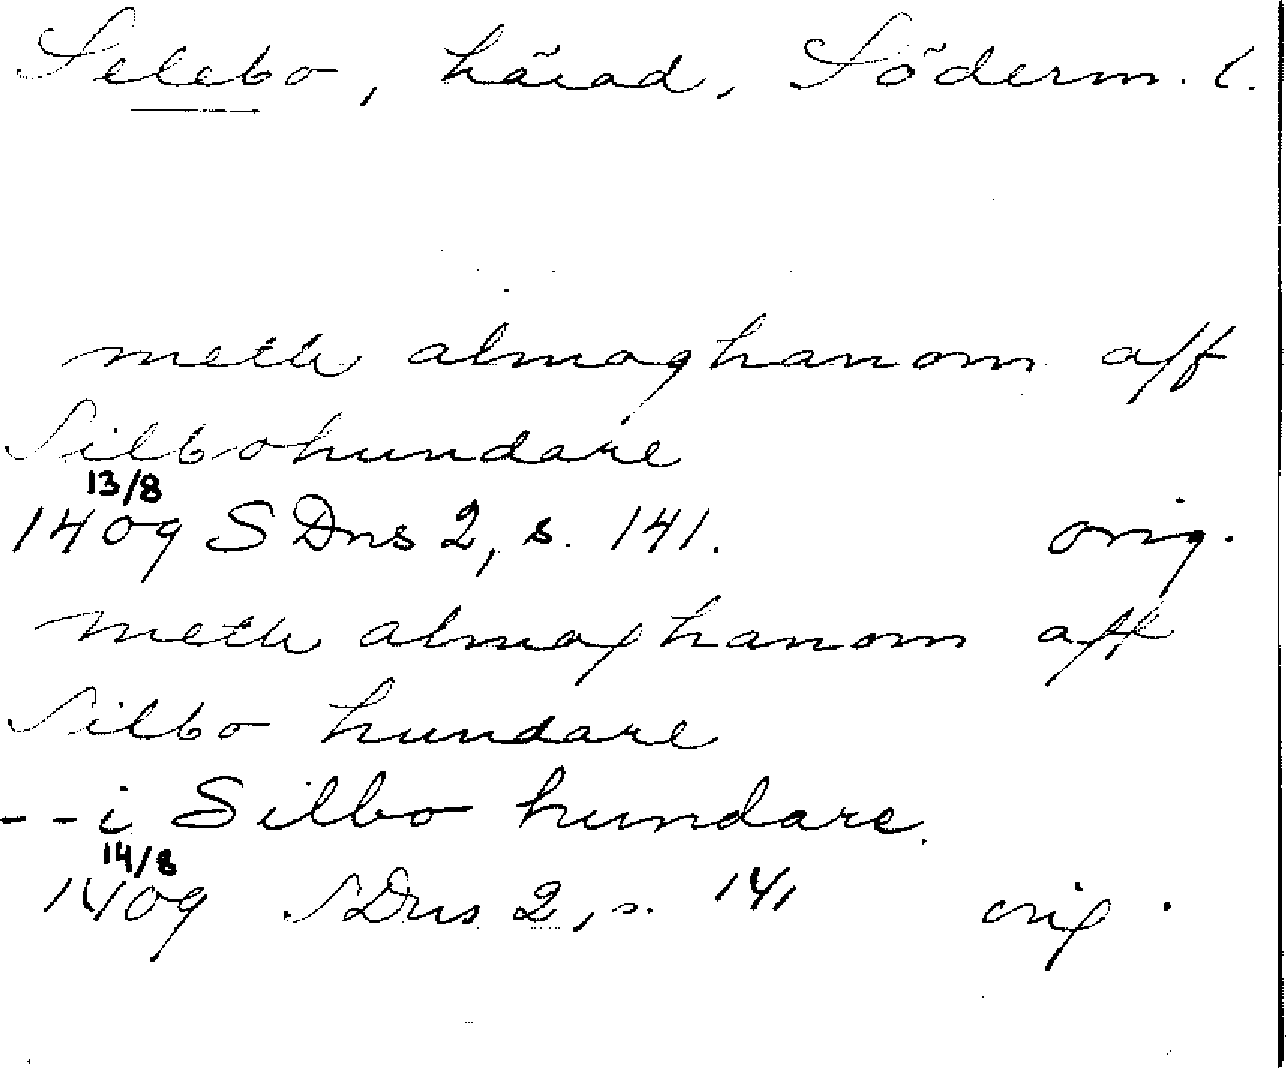 Selebo, härad, Söderm. l.
meth almoghanom aff
Silbohundare
13/8
1409 SDns 2, s. 141. orig.
meth almoghanom aff
Silbo hundare
--i Silbo hundare.
14/8
1409 SDns 2, s. 141 orig.